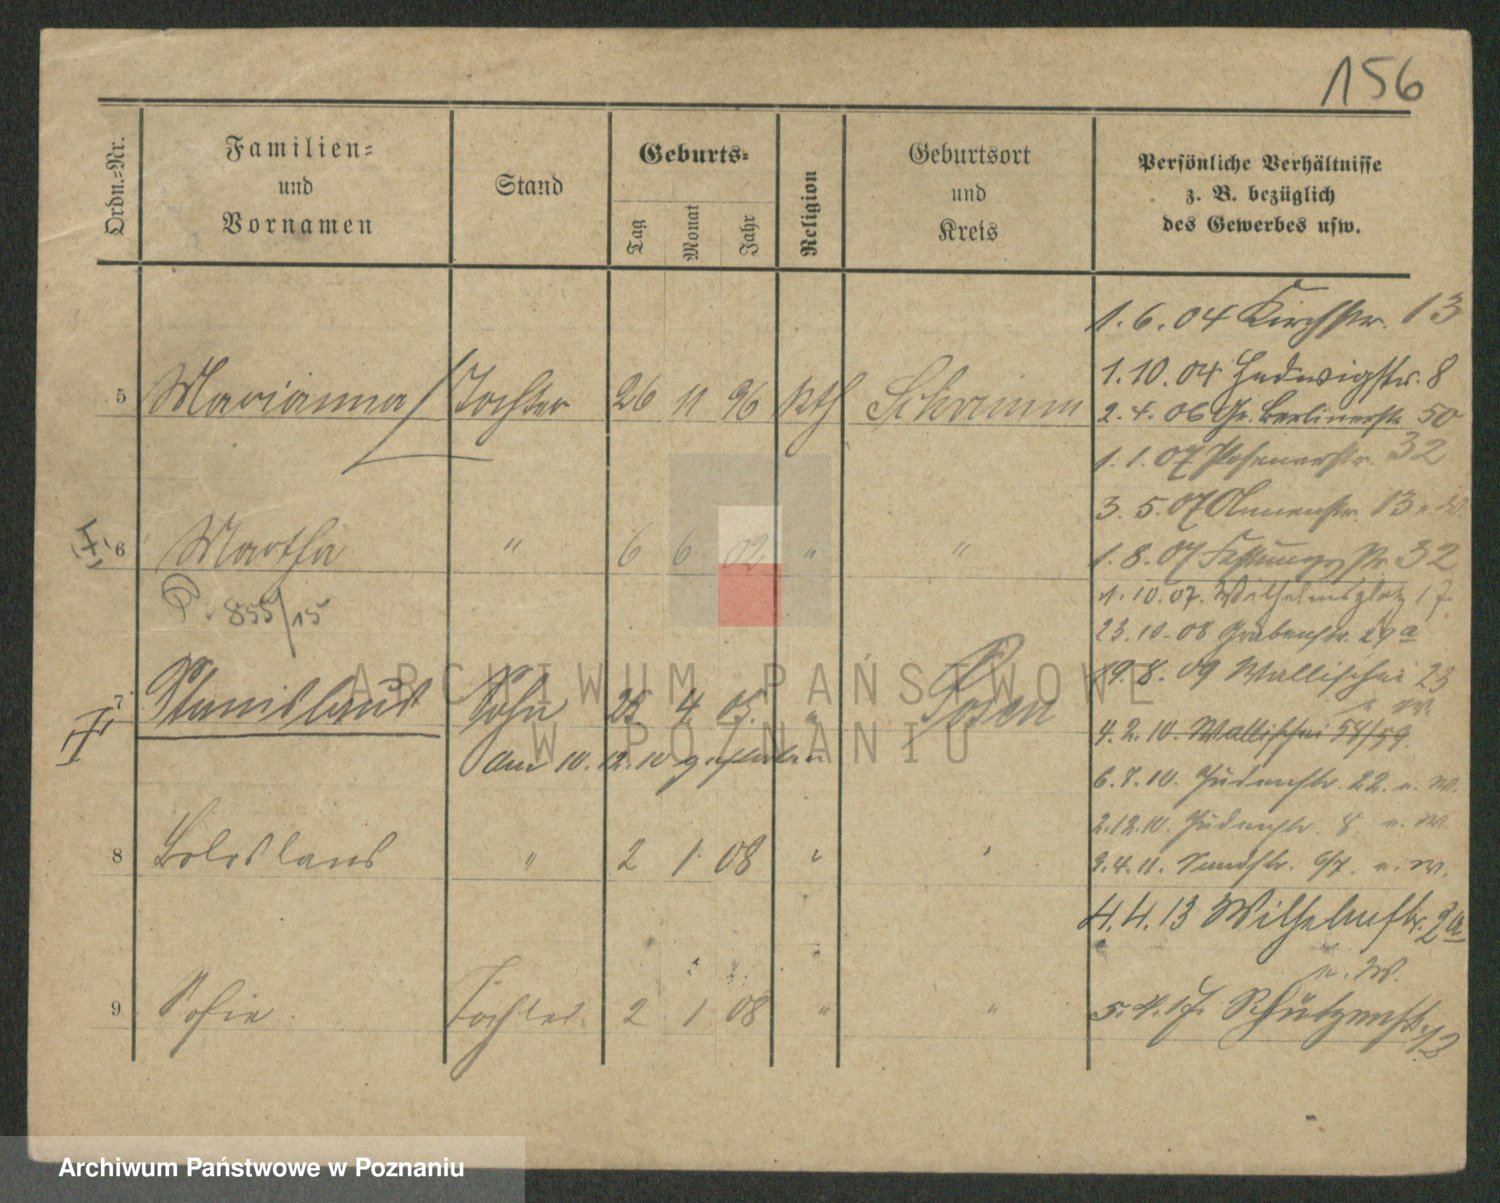 156
Ordn.-Nr.
Familien-
und
Vornamen
Stand
Geburts-
Tag Monat Jahr
Religion
Geburtsort
und
Kreis
Persönliche Verhältnisse
z. B. bezüglich
des Gewerbes usw.
1. 6. 04 Kirchstr. 13
1. 10. 04 Hedwigstr. 8
5 Marianna Tochter 26 11 96 kth Schrimm
2. 4. 06 Gr. Berlinerstr. 50
1. 1. 07 Posenerstr. 32
3. 5. 07 Blumenstr. 13 u. W.
6 Martha " 6 6 02 " "
1. 8. 07 Festungsstr. 32
1. 10. 07. Wilhelmsplatz 17
P. 855/15
23. 10. 08 Grabenstr. 29a
19. 8. 09 Wallischei 23
u W
7 Stanislaus Sohn 4. 05. " Posen
4. 2. 10. Wallischei 58/59.
am 10. 12. 10 gestorben
6. 7. 10. Judenstr. 22. u. W.
2. 12. 10. Judenstr. 8. u. W.
8 Boleslaus " 2 1. 08 " "
4. 11. Sandstr. 6/7. u. W.
4. 4. 13 Wilhelmstr. 2a
u. W.
9 Sofie. Tochter. 2 1 08 " "
5. 4. 17. Schützenstr. 13
ARCHIWUM PAŃSTWOWE
W POZNANIU
Archiwum Państwowe w Poznaniu